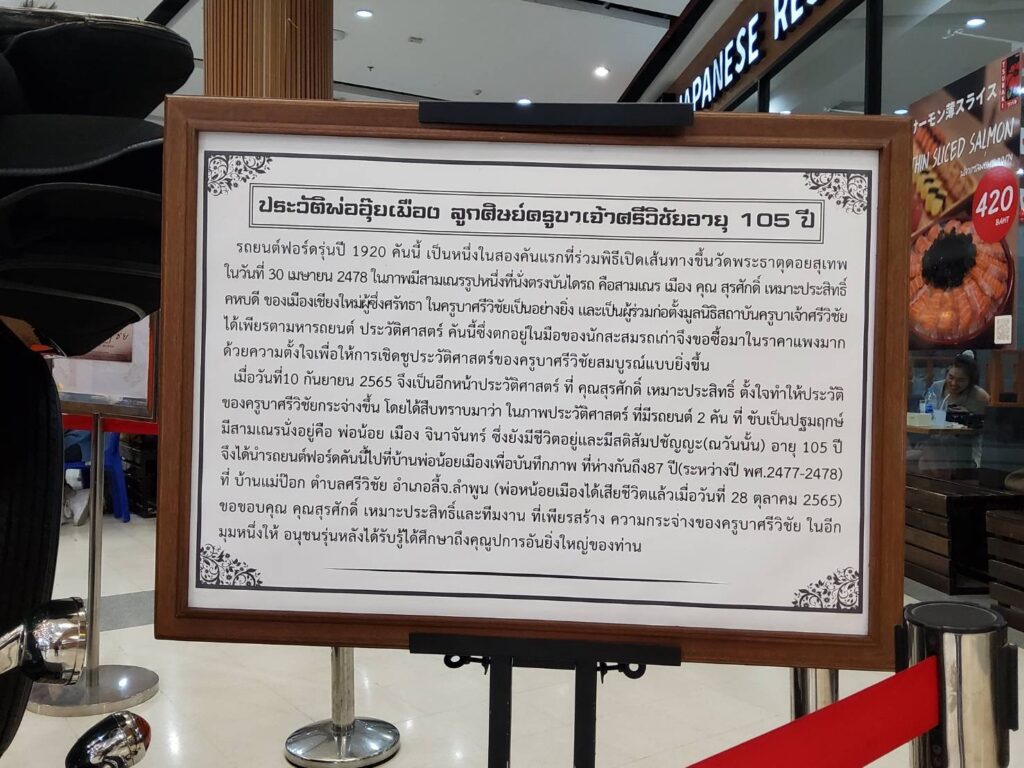 ประวัติพ่ออุ๊ยเมือง ลูกศิษย์ครูบาเจ้าศรีวิชัยอายุ 105 ปี
รถยนต์ฟอร์ดรุ่นปี 1920 คันนี้ เป็นหนึ่งในสองคันแรกที่ร่วมพิธีเปิดเส้นทางขึ้นวัดพระธาตุดอยสุเทพ
ในวันที่ 30 เมษายน 2478 ในภาพมีสามเณรรูปหนึ่งที่นั่งตรงบันไดรถ คือสามเณร เมือง คุณ สุรศักดิ์ เหมาะประสิทธิ์
คหบดี ของเมืองเชียงใหม่ผู้ซึ่งศรัทธา ในครูบาศรีวิชัยเป็นอย่างยิ่ง และเป็นผู้ร่วมก่อตั้งมูลนิธิสถาบันครูบาเจ้าศรีวิชัย
ได้เพียรตามหารถยนต์ ประวัติศาสตร์ คันนี้ซึ่งตกอยู่ในมือของนักสะสมรถเก่าจึงขอซื้อมาในราคาแพงมาก
ด้วยความตั้งใจเพื่อให้การเชิดชูประวัติศาสตร์ของครูบาศรีวิชัยสมบูรณ์แบบยิ่งขึ้น
เมื่อวันที่10 กันยายน 2565 จึงเป็นอีกหน้าประวัติศาสตร์ ที่ คุณสุรศักดิ์ เหมาะประสิทธิ์ ตั้งใจทำให้ประวัติ
ของครูบาศรีวิชัยกระจ่างขึ้น โดยได้สืบทราบมาว่า ในภาพประวัติศาสตร์ ที่มีรถยนต์ 2 คัน ที่ ขับเป็นปฐมฤกษ์
มีสามเณรนั่งอยู่คือ พ่อน้อย เมือง จินาจันทร์ ซึ่งยังมีชีวิตอยู่และมีสติสัมปชัญญะ(ณวันนั้น) อายุ 105 ปี
จึงได้นำรถยนต์ฟอร์ดคันนี้ไปที่บ้านพ่อน้อยเมืองเพื่อบันทึกภาพ ที่ห่างกันถึง87 ปี(ระหว่างปี พศ.2477-2478)
ที่ บ้านแม่ป๊อก ตำบลศรีวิชัย อำเภอลี้จ.ลำพูน (พ่อหน้อยเมืองได้เสียชีวิตแล้วเมื่อวันที่ 28 ตุลาคม 2565)
ขอขอบคุณ คุณสุรศักดิ์ เหมาะประสิทธิ์และทีมงาน ที่เพียรสร้าง ความกระจ่างของครูบาศรีวิชัย ในอีก
มุมหนึ่งให้ อนุชนรุ่นหลังได้รับรู้ได้ศึกษาถึงคุณูปการอันยิ่งใหญ่ของท่าน
JAPANESE RES
ーモン薄スライス
THIN SLICED SALMON
420
BAHT